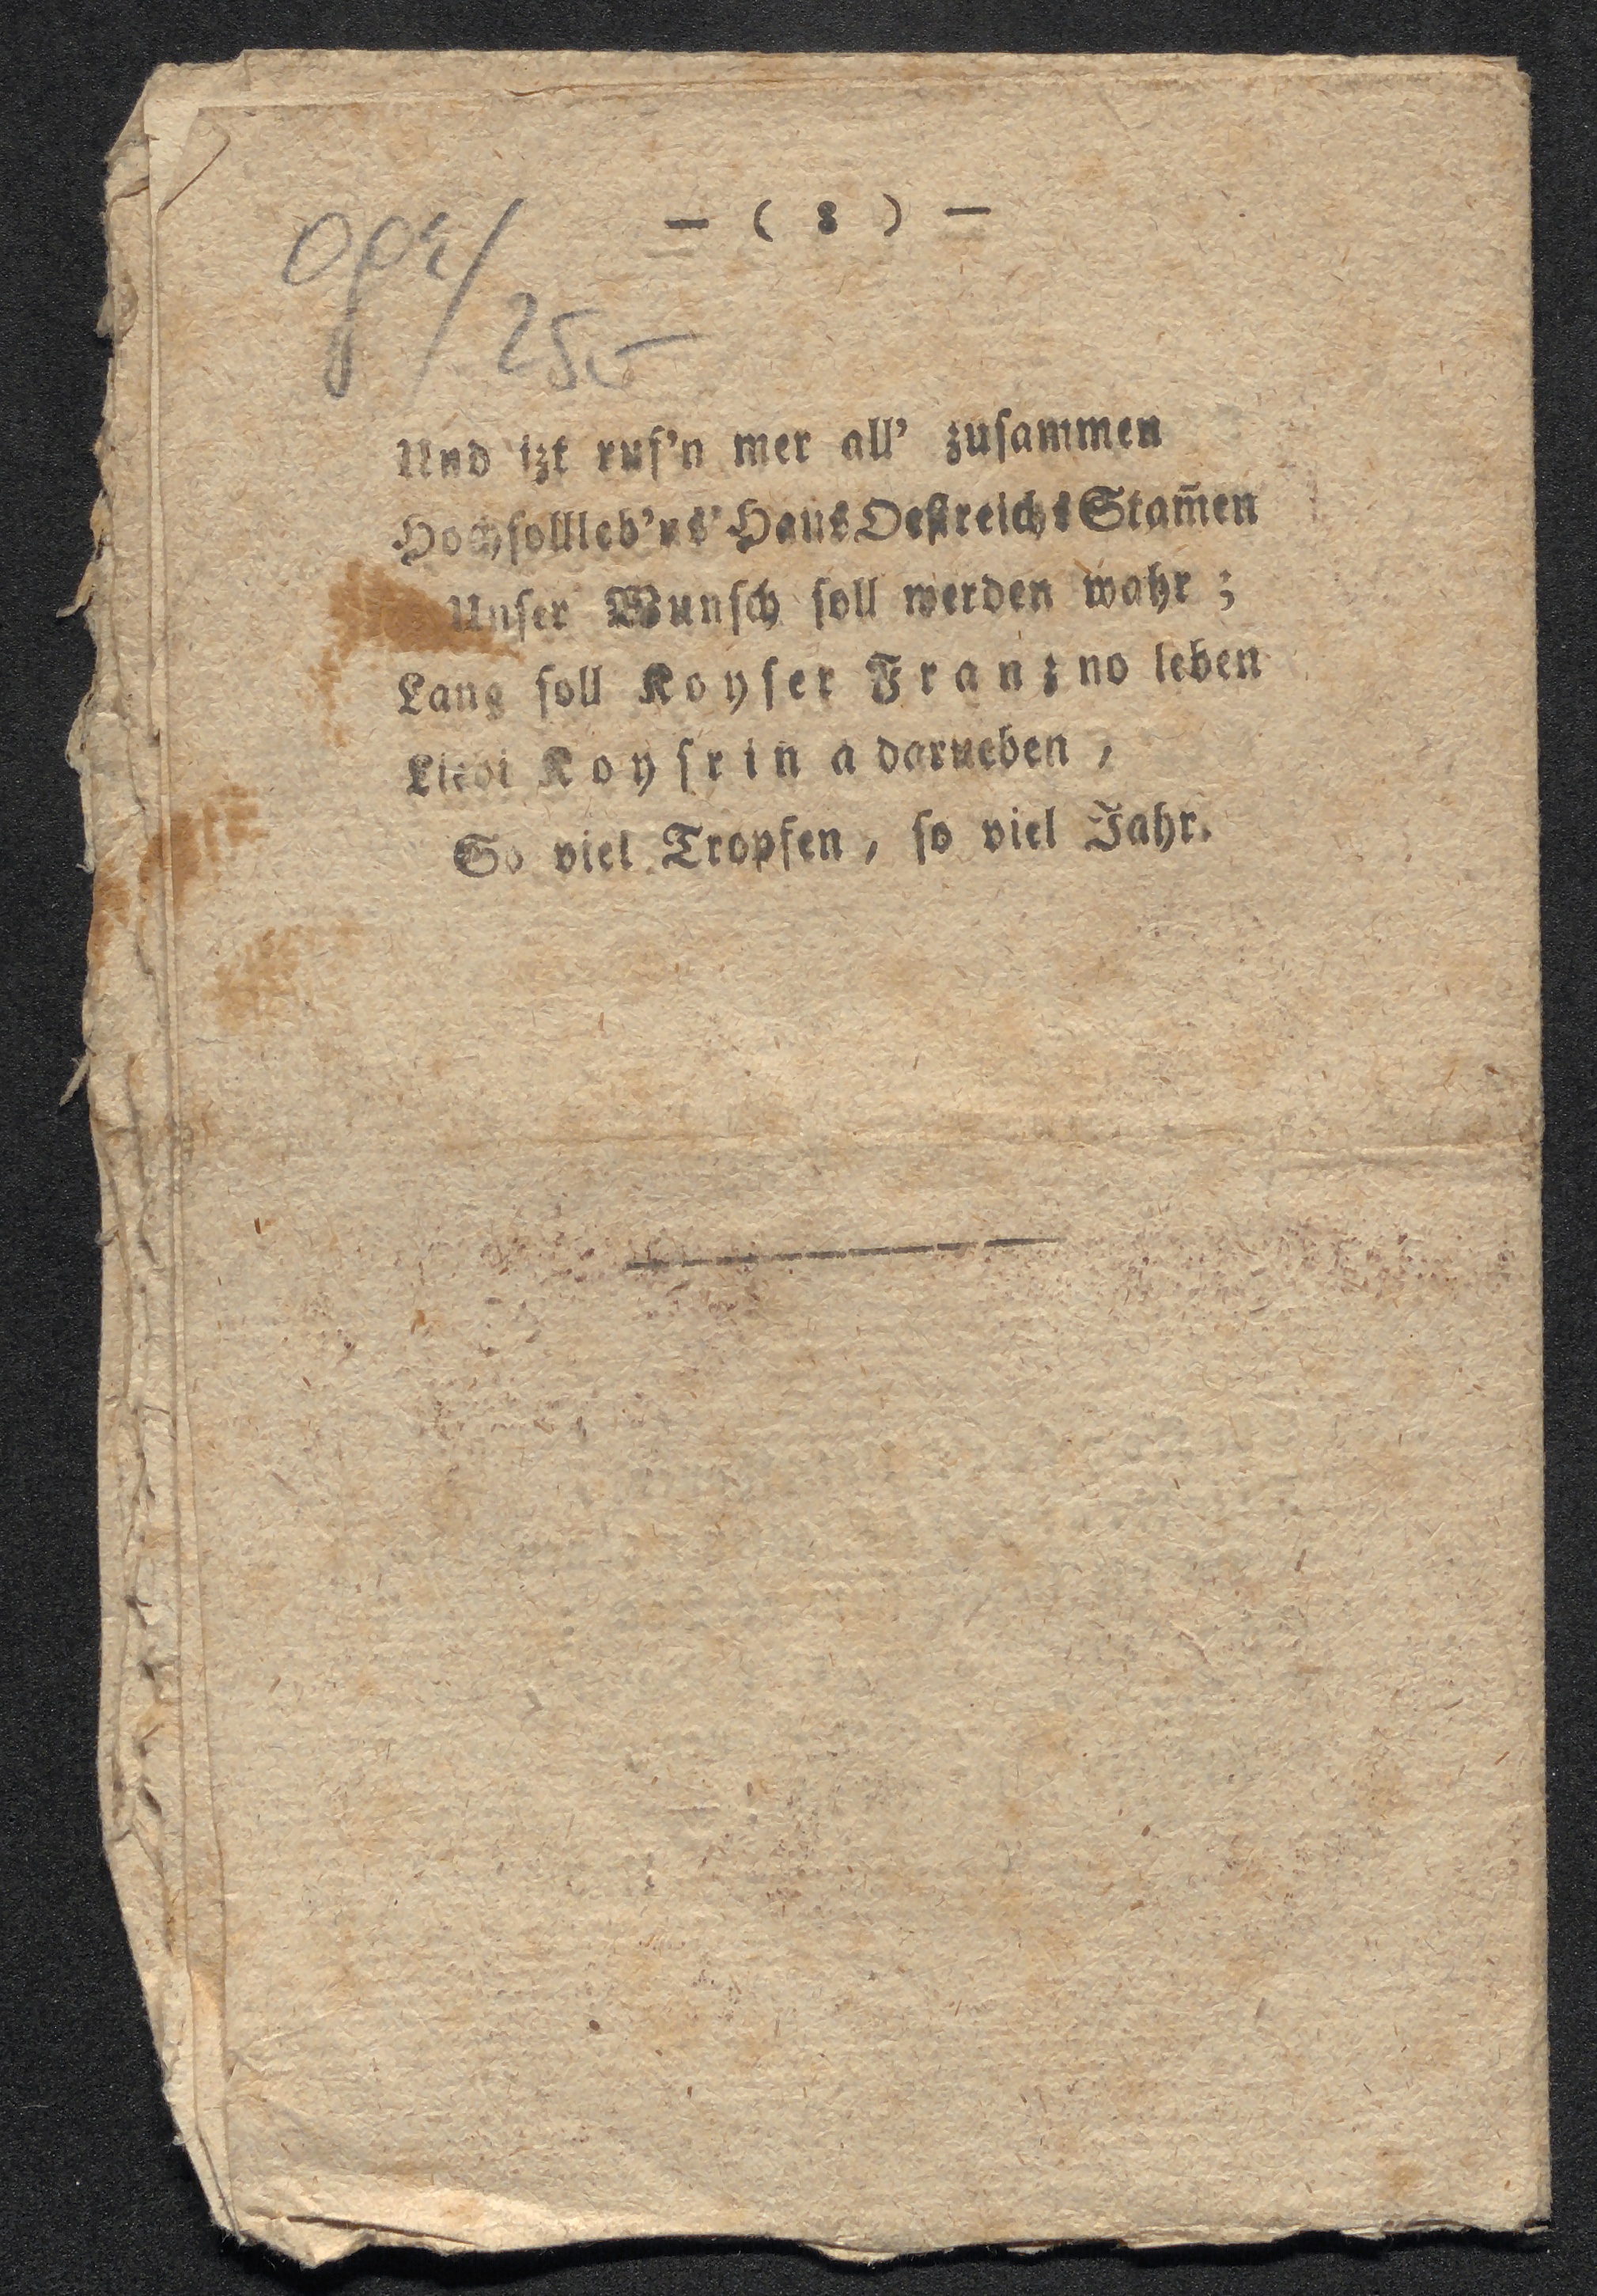 — ( 8 ) —
250
Und izt ruf'n mer all' zusammen
Hoch soll leb'n s' Haus Oestreichs Stam̄en
Unser Wunsch soll werden wahr;
Lang soll Koyser Franz no leben
Liebi Koysrin a darneben,
So viel Tropfen, so viel Jahr.